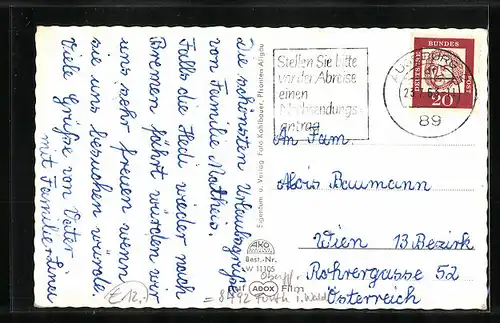 Die schönsten Urlaubsgrüße
von Familie Matheis.
Falls die Hedi wieder nach
Bremen fährt würden wir
uns sehr freuen wenn
sie uns besuchen würde.
Viele Grüße von Vater
mit Familie Linu
€ 12,-
Eigentum u. Verlag Foto Kohlbauer, Pfronten Allgäu
AKO
Best.-Nr.
W 11105
auf ADOX Film
= 8492 Furth i. Wald
Stellen Sie bitte
vor der Abreise
einen
Nachsendungs-
antrag
89
DEUTSCHE BUNDESPOST
20
An Fam.
Alois Baumann
Wien 13 Bezirk
Rohrergasse 52
Österreich